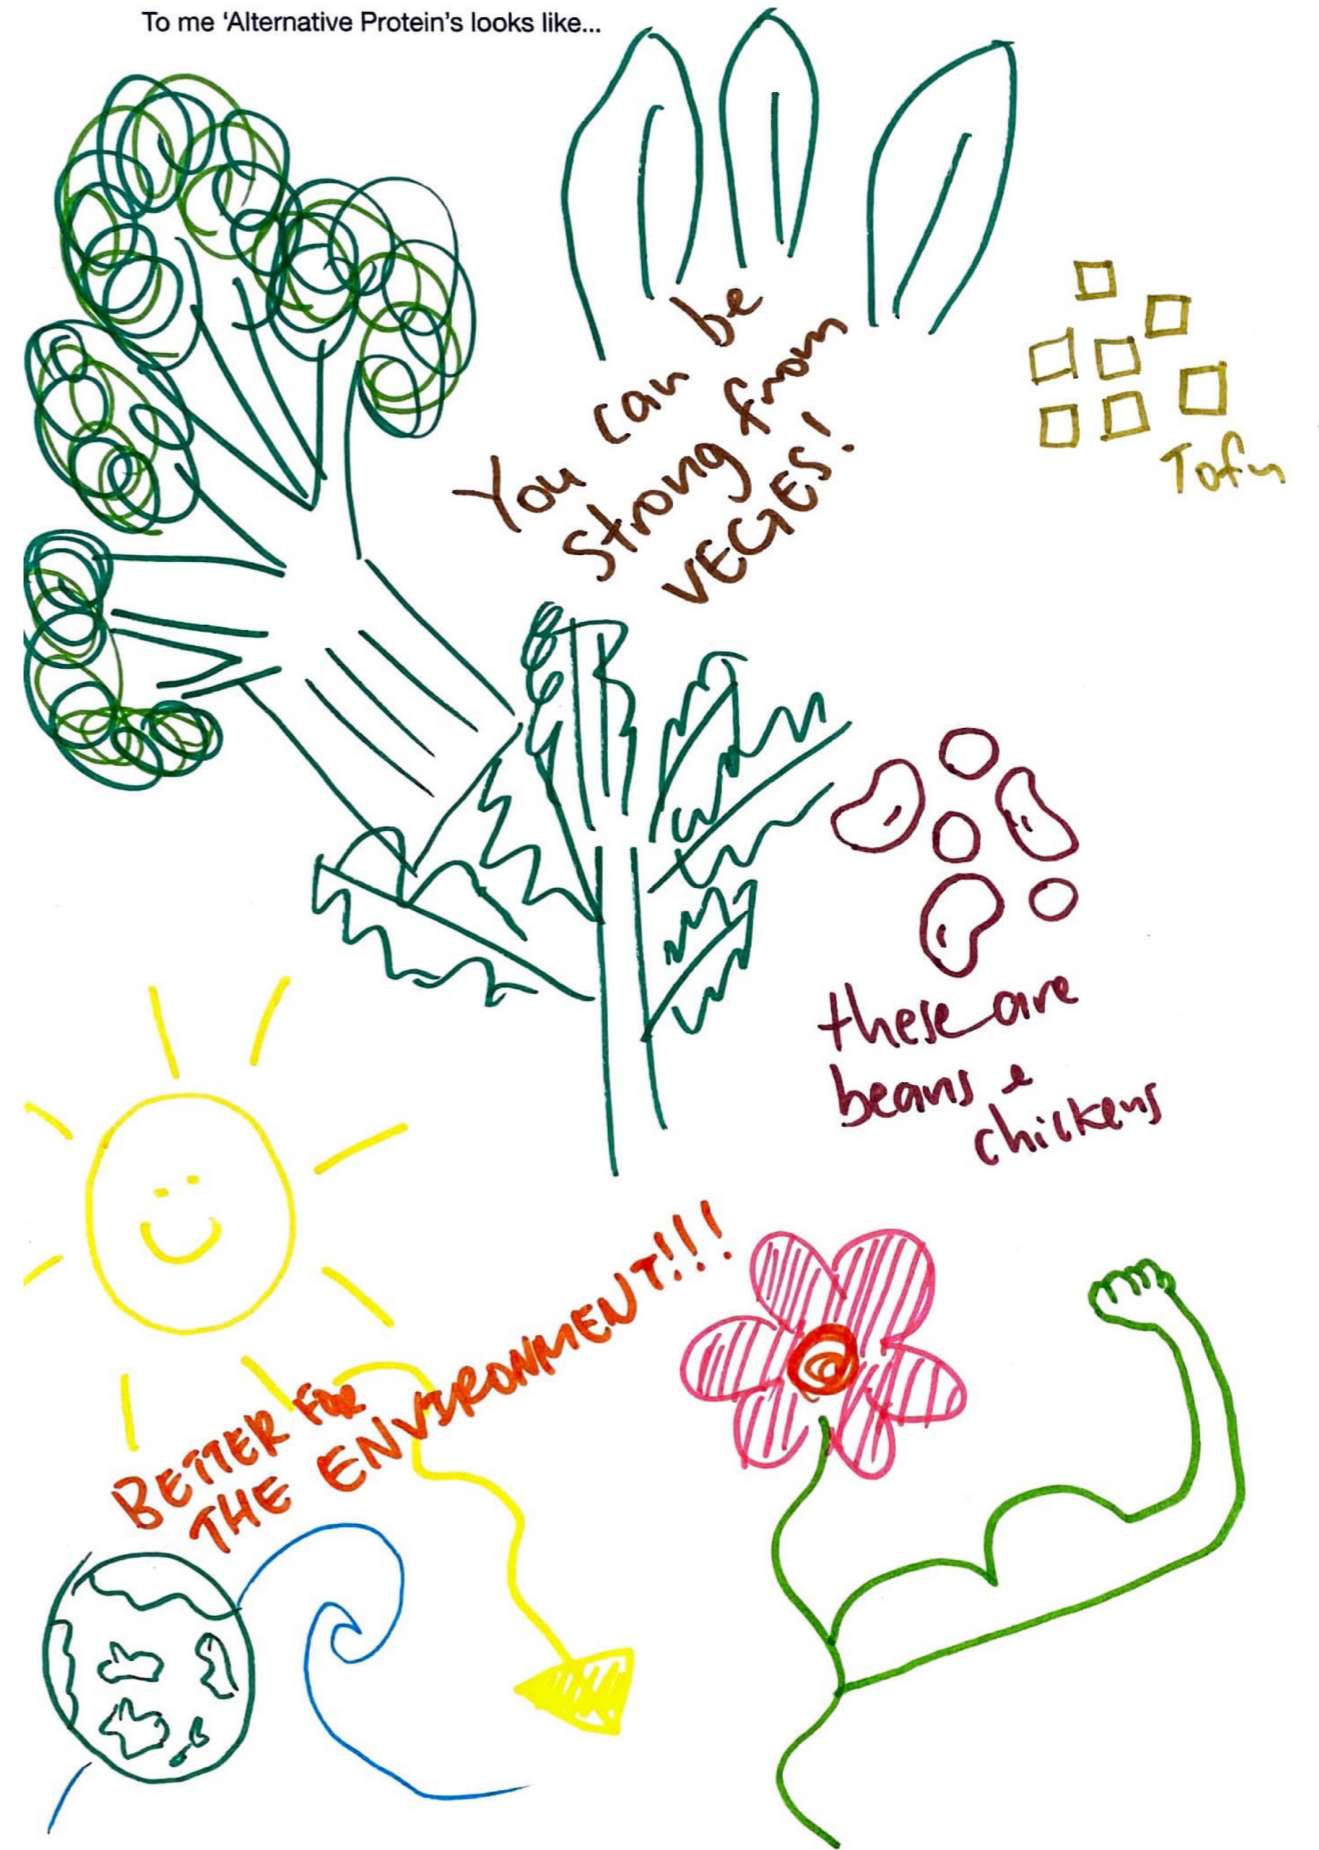 To me ‘Alternative Protein’s looks like...
You can be
strong from
VEGIES!
Tofu
these are
beans &
chickens
BETTER FOR
THE ENVIRONMENT!!!